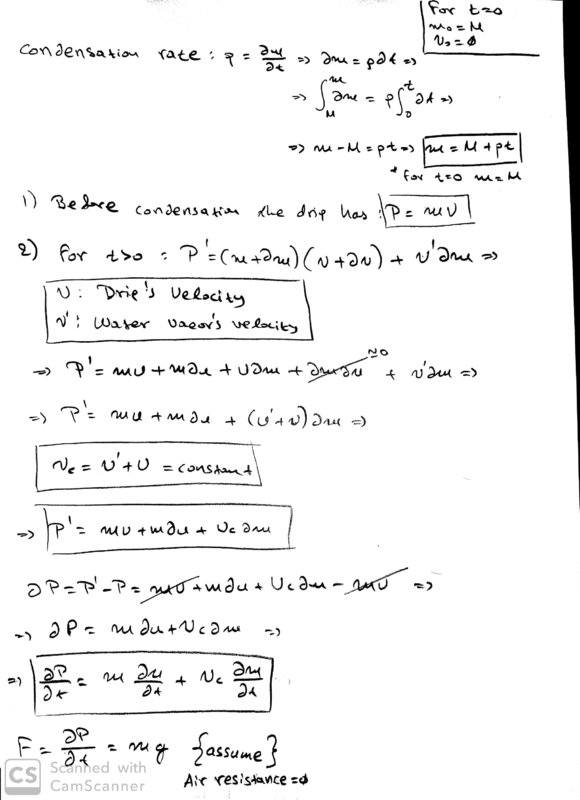 For t=0
m₀ = M
v₀ = 0
Condensation rate : ρ = ∂m/∂t => ∂m = ρ∂t =>
=> ∫_M^m ∂m = ρ∫_0^t ∂t =>
=> m-M = ρt => m = M + ρt
* for t=0 m=M
1) Before condensation the drip has : P = mv
2) for t>0 : P' = (m+∂m)(v+∂v) + v'∂m =>
v : Drip's Velocity
v' : Water vapor's velocity
=> P' = mv + m∂v + v∂m + ∂m∂v + v'∂m =>
=> P' = mv + m∂v + (v'+v)∂m =>
vc = v' + v = constant
=> P' = mv + m∂v + vc∂m
∂P = P' - P = mv + m∂v + vc∂m - mv =>
=> ∂P = m∂v + vc∂m =>
=> ∂P/∂t = m ∂v/∂t + vc ∂m/∂t
F = ∂P/∂t = mg {assume}
Air resistance = 0
CS Scanned with
CamScanner